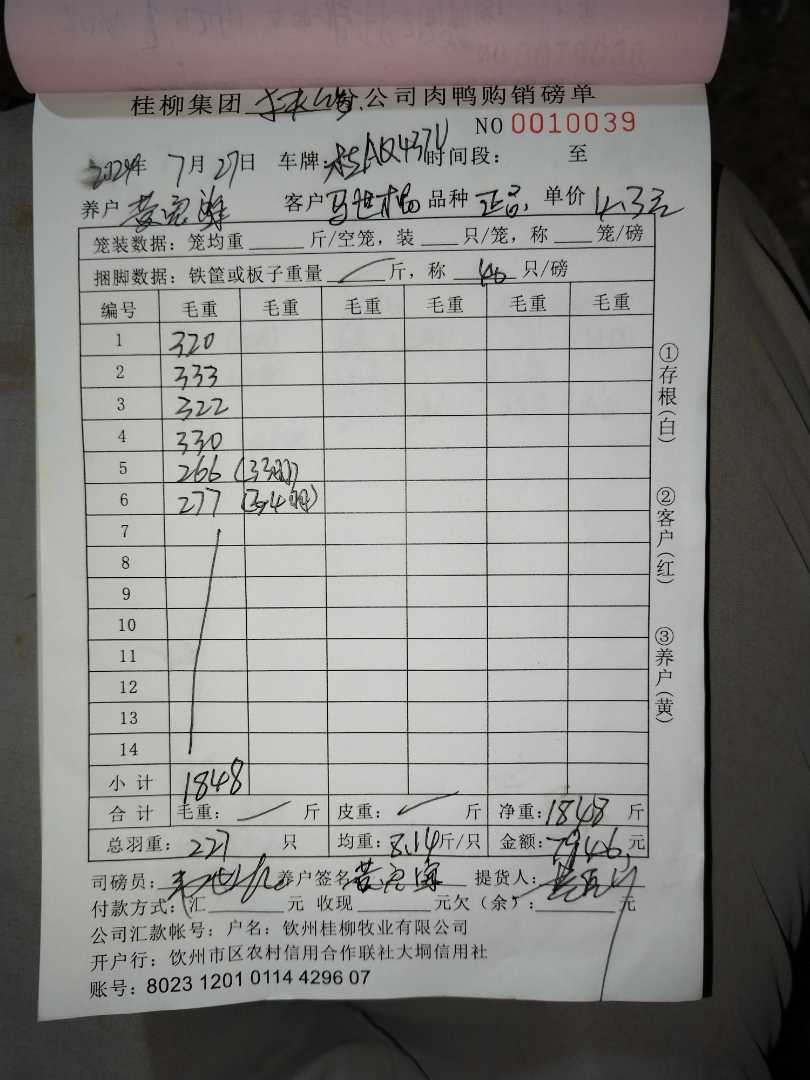 桂柳集团 公司肉鸭购销磅单
NO 0010039
2024年 7月27日 车牌: 时间段: 至
养户 黄 客户 马世 品种 正品 单价 4.3元
笼装数据: 笼均重 斤/空笼, 装 只/笼, 称 笼/磅
捆脚数据: 铁筐或板子重量 斤, 称 40 只/磅
编号 毛重 毛重 毛重 毛重 毛重 毛重
1 320
2 333
3 322
4 330
5 266 (33只)
6 277 (34只)
7
8
9
10
11
12
13
14
小计 1848
合计 毛重: 斤 皮重: 斤 净重: 1848 斤
总羽重: 227 只 均重: 8.14 斤/只 金额: 7946 元
司磅员: 养户签名 黄 提货人:
付款方式: 汇 元 收现 元欠(余): 元
公司汇款帐号: 户名: 钦州桂柳牧业有限公司
开户行: 钦州市区农村信用合作联社大垌信用社
账号: 8023 1201 0114 4296 07
①存根(白)
②客户(红)
③养户(黄)